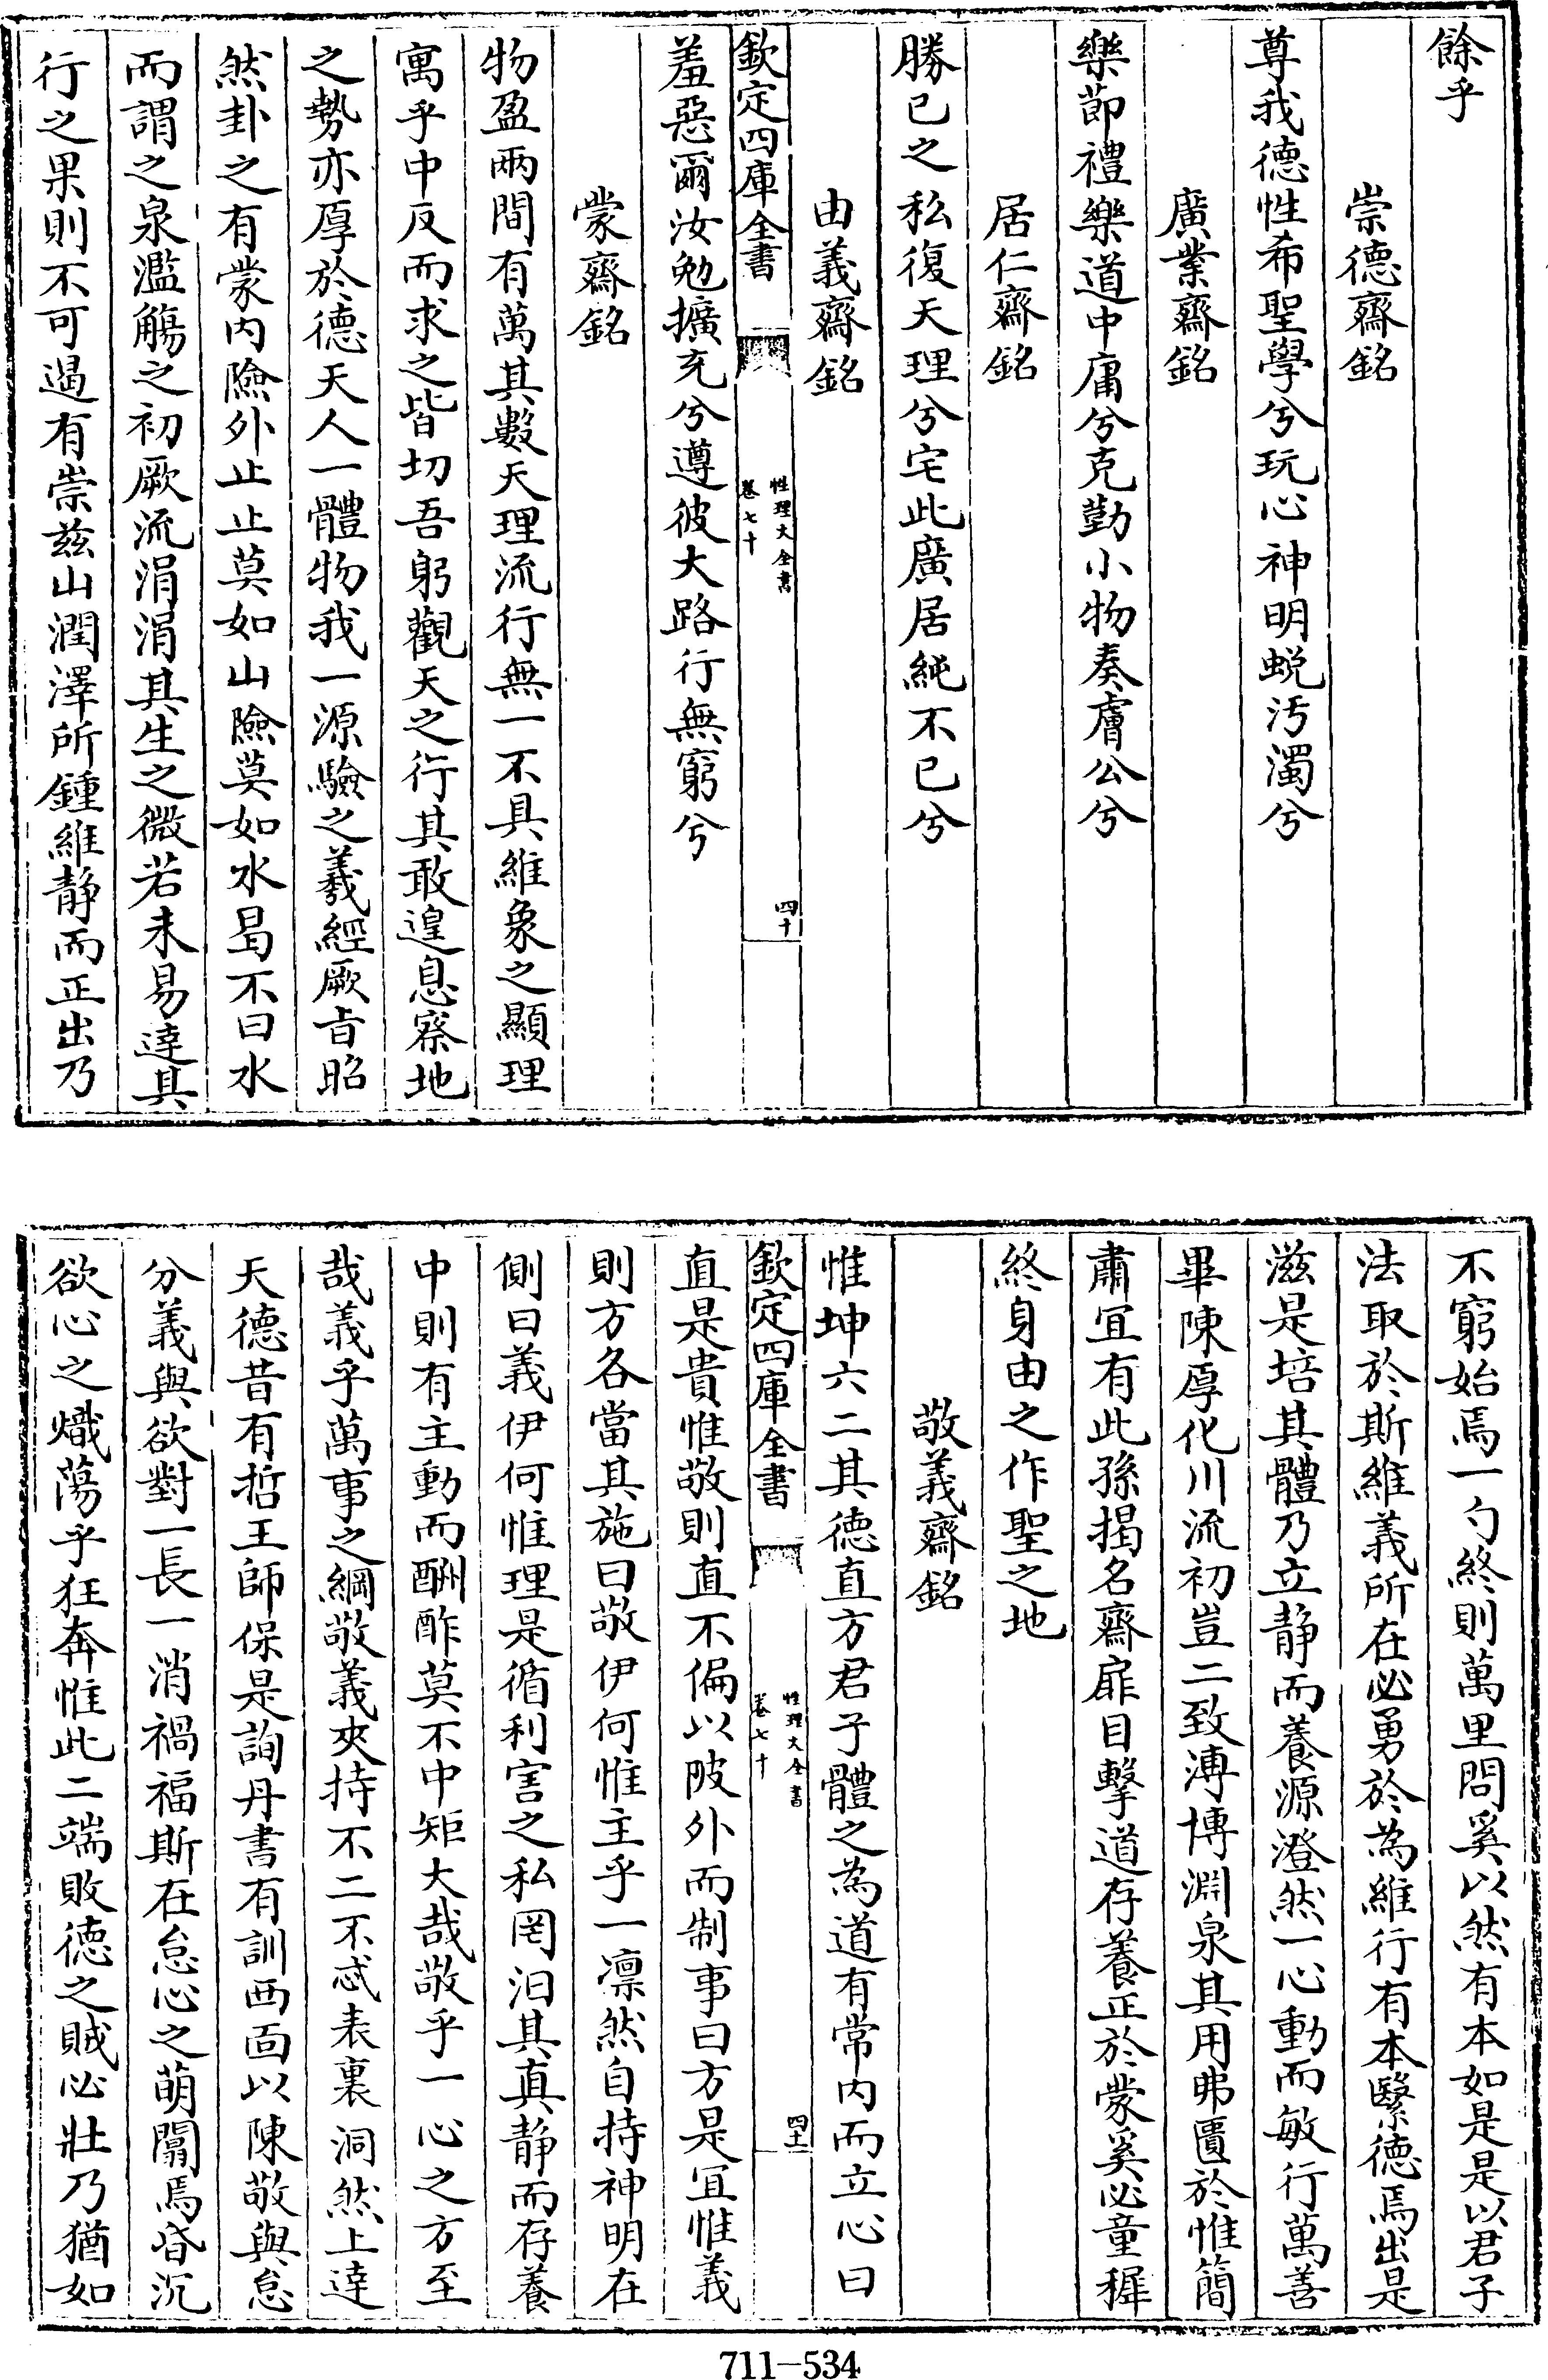 餘乎
崇德齋銘
尊我德性希聖學兮玩心神明蛻汚濁兮
廣業齋銘
樂節禮樂道中庸兮克勤小物奏膚公兮
居仁齋銘
勝已之私復天理兮宅此廣居純不已兮
由義齋銘
欽定四庫全書
性理大全書
卷七十
四十
羞惡爾汝勉擴充兮遵彼大路行無窮兮
蒙齋銘
物盈兩間有萬其數天理流行無一不具維象之顯理
寓乎中反而求之皆切吾躬觀天之行其敢遑息察地
之勢亦厚於德天人一體物我一源驗之羲經厥旨昭
然卦之有蒙内險外止止莫如山險莫如水曷不曰水
而謂之泉濫觴之初厥流涓涓其生之微若未易達其
行之果則不可遏有崇兹山潤澤所鍾維静而正出乃
不窮始焉一勺終則萬里問奚以然有本如是是以君子
法取於斯維義所在必勇於為維行有本繄德焉出是
滋是培其體乃立静而養源澄然一心動而敏行萬善
畢陳厚化川流初豈二致溥博淵泉其用弗匱於惟簡
肅宜有此孫揭名齋扉目擊道存養正於蒙奚必童穉
終身由之作聖之地
敬義齋銘
惟坤六二其德直方君子體之為道有常内而立心曰
欽定四庫全書
性理大全書
卷七十
四十一
直是貴惟敬則直不偏以陂外而制事曰方是宜惟義
則方各當其施曰敬伊何惟主乎一凛然自持神明在
側曰義伊何惟理是循利害之私罔汩其真静而存養
中則有主動而酬酢莫不中矩大哉敬乎一心之方至
哉義乎萬事之綱敬義夾持不二不忒表裏洞然上達
天德昔有哲王師保是詢丹書有訓西面以陳敬與怠
分義與欲對一長一消禍福斯在怠心之萌闒焉昏沉
欲心之熾蕩乎狂奔惟此二端敗德之賊必壯乃猶如
711-534